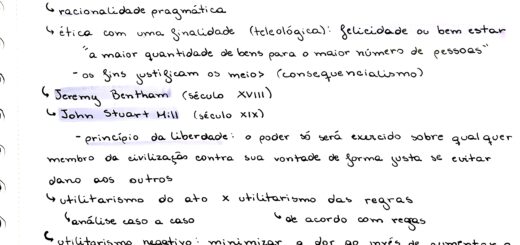 ↳ racionalidade pragmática
↳ ética com uma finalidade (teleológica): felicidade ou bem estar
"a maior quantidade de bens para o maior número de pessoas"
- os fins justificam os meios (consequencialismo)
↳ Jeremy Bentham (século XVIII)
↳ John Stuart Mill (século XIX)
- princípio da liberdade: o poder só será exercido sobre qualquer
membro da civilização contra sua vontade de forma justa se evitar
dano aos outros
↳ utilitarismo do ato x utilitarismo das regras
↳ análise caso a caso ↳ de acordo com regras
↳ utilitarismo negativo: minimizar a dor ao invés de aumentar a